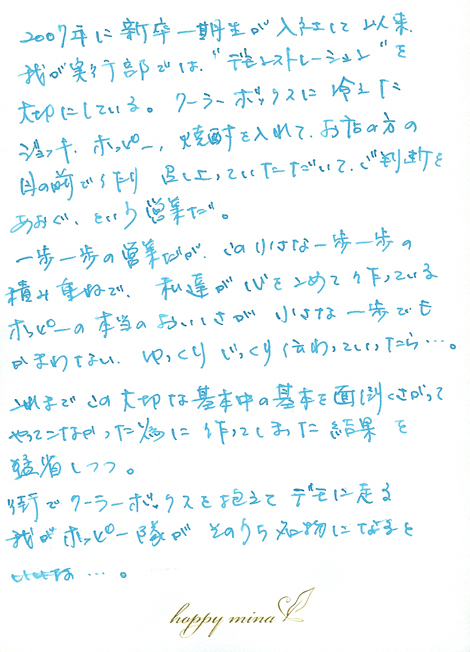 2007年に新卒一期生が入社して以来、
我が実行部では、"デモンストレーション"を
大切にしている。クーラーボックスに冷えた
ジョッキ、ホッピー、焼酎を入れて、お店の方の
目の前で作り 召し上っていただいて、ご判断を
あおぐ、という営業だ。
一歩一歩の営業だが、この小さな一歩一歩の
積み重ねで、私達が心をこめて作っている
ホッピーの本当のおいしさが 小さな一歩でも
かまわない、ゆっくりじっくり伝わっていったら…。
これまでこの大切な基本中の基本を面倒くさがって
やってこなかった為に作ってしまった結果を
猛省しつつ。
街でクーラーボックスを抱えてデモに走る
我がホッピー隊が そのうち名物になると
いいな…。
hoppy mina